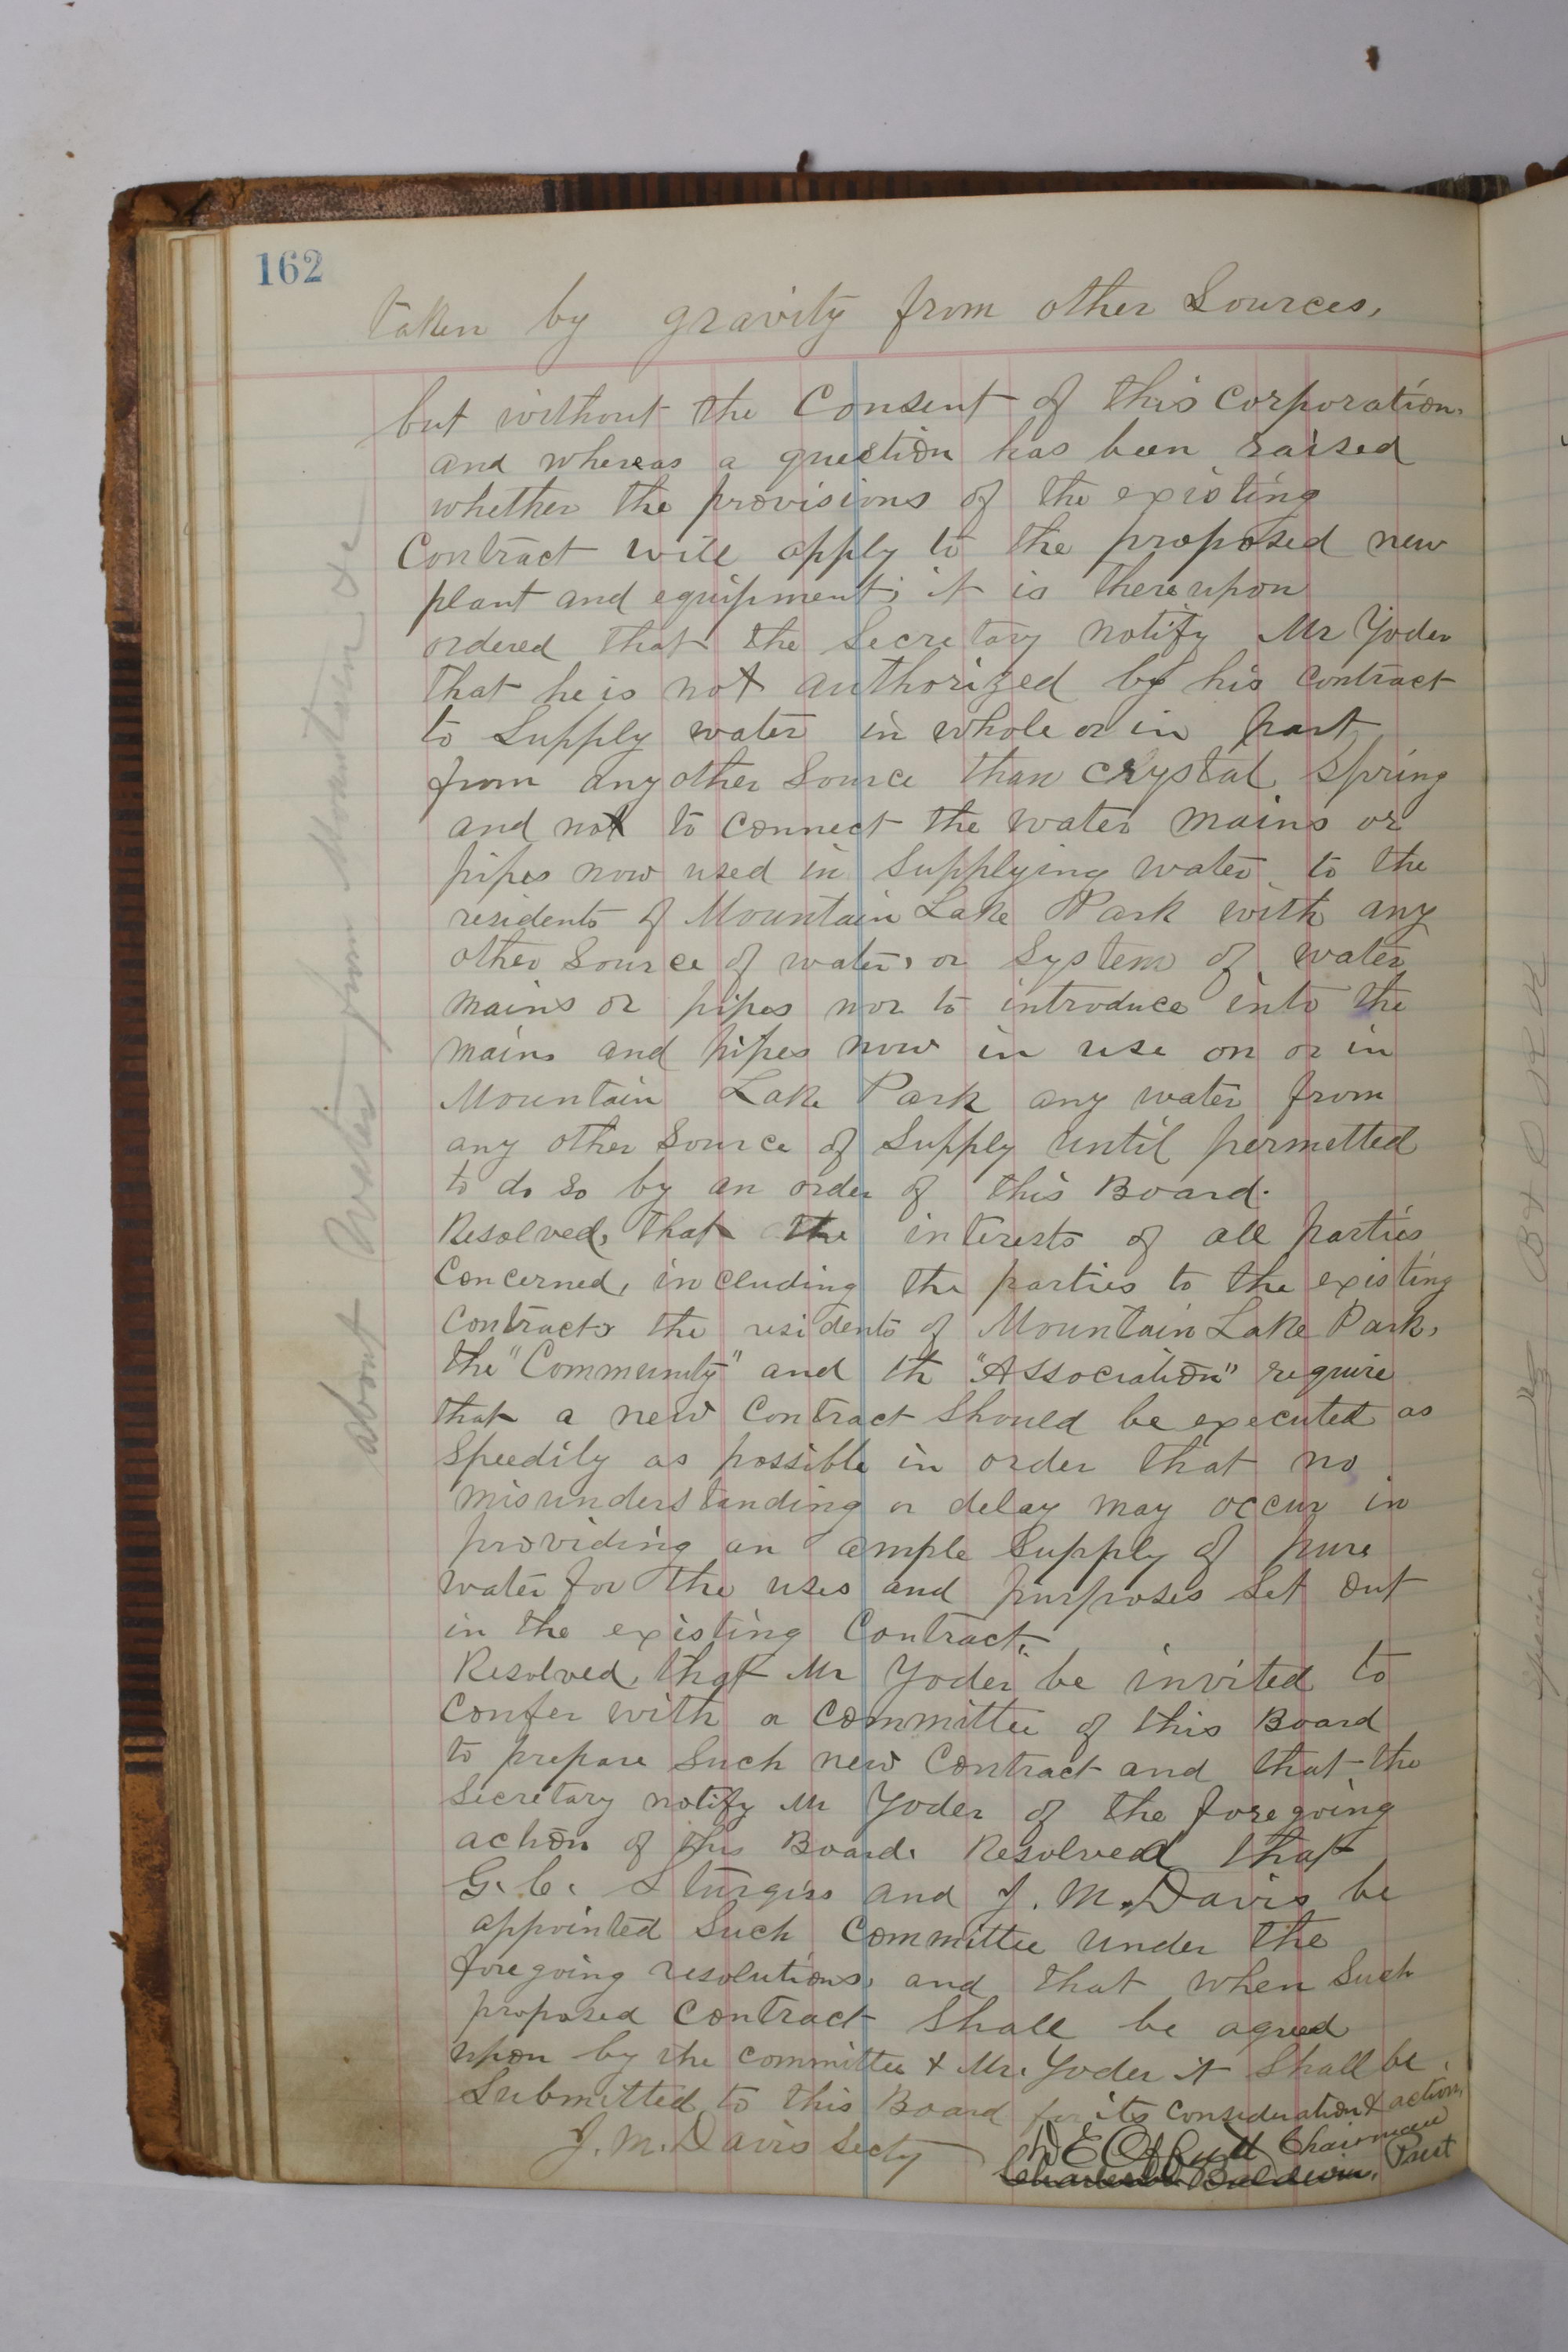 162
taken by gravity from other Sources,
but without the Consent of this Corporation.
and whereas a question has been raised
whether the provisions of the existing
Contract will apply to the proposed new
plant and equipment; it is thereupon
ordered that the Secretary notify Mr Yoder
that he is not authorized by his contract
to Supply water in whole or in part
from any other Source than Crystal Spring
and not to connect the water mains or
pipes now used in Supplying water to the
residents of Mountain Lake Park with any
other Source of water, or System of water
mains or pipes nor to introduce into the
mains and pipes now in use on or in
Mountain Lake Park any water from
any other Source of Supply until permitted
to do so by an order of this Board.
Resolved, that the interests of all parties
Concerned, including the parties to the existing
Contract, the residents of Mountain Lake Park,
the "Community" and th "Association" require
that a new Contract Should be executed as
Speedily as possible in order that no
misunderstanding or delay may occur in
providing an ample Supply of pure
water for the uses and purposes Set out
in the existing Contract.
Resolved, that Mr Yoder be invited to
Confer with a Committee of this Board
to prepare Such new Contract and that the
Secretary notify Mr Yoder of the foregoing
action of this Board. Resolved that
G. C. Sturgiss and J. M. Davis be
appointed Such Committee under the
foregoing resolutions, and that when Such
proposed Contract Shall be agreed
upon by the Committee & Mr. Yoder it Shall be
Submitted to this Board for its Consideration & action.
J. M. Davis Secty
W E Offutt Chairman
Baldwin, Prest
about Water from Mountain &c